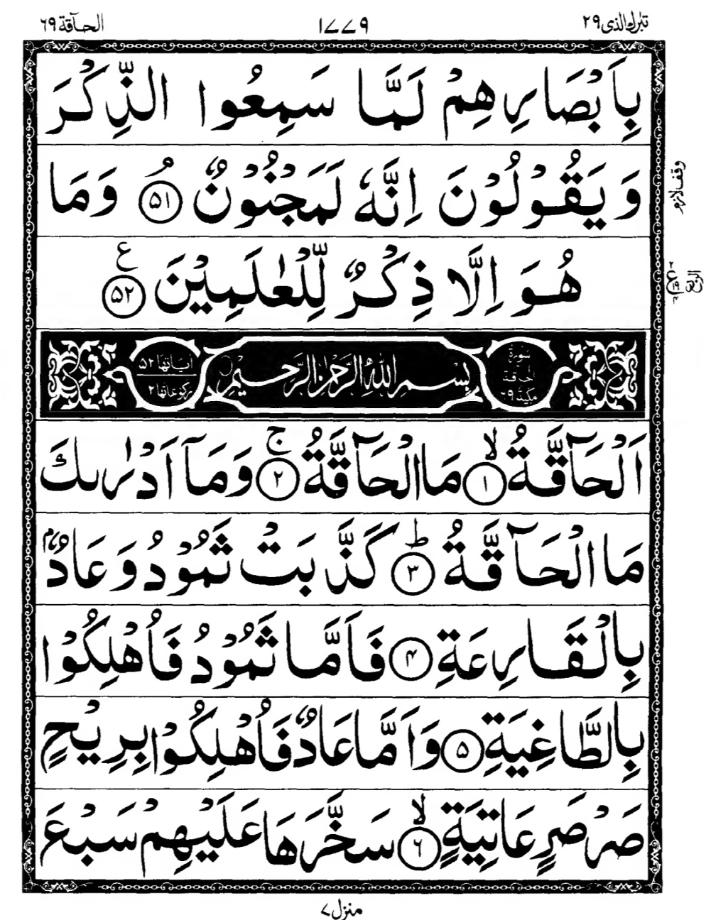 تبٰرك الذی ٢٩
١٧٧٩
الحآقة ٦٩
بِاَبْصَارِهِمْ لَمَّا سَمِعُوا الذِّكْرَ
وَيَقُوْلُوْنَ اِنَّهٗ لَمَجْنُوْنٌ ۘ ۝٥١ وَمَا
وقف لازم
هُوَ اِلَّا ذِكْرٌ لِّلْعٰلَمِيْنَ ۝٥٢ ع
سُوْرَةُ الحَاقَّةِ مَكِّيَّة
بِسْمِ اللهِ الرَّحْمٰنِ الرَّحِيْمِ
اٰيَاتُهَا ٥٢ رُكُوْعَاتُهَا ٢
اَلْحَآقَّةُ ۝١ ۙ مَا الْحَآقَّةُ ۝٢ ۚ وَمَآ اَدْرٰىكَ
مَا الْحَآقَّةُ ۝٣ ؕ كَذَّبَتْ ثَمُوْدُ وَعَادٌۢ
بِالْقَارِعَةِ ۝٤ فَاَمَّا ثَمُوْدُ فَاُهْلِكُوْا
بِالطَّاغِيَةِ ۝٥ وَاَمَّا عَادٌ فَاُهْلِكُوْا بِرِيْحٍ
صَرْصَرٍ عَاتِيَةٍ ۝٦ ۙ سَخَّرَهَا عَلَيْهِمْ سَبْعَ
منزل ٧